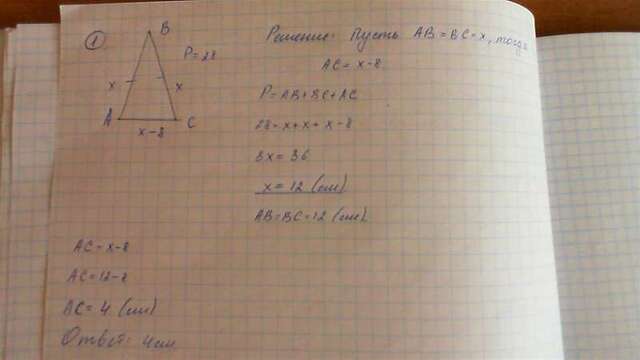 1
B
P=28
x
x
A
C
x-8
Решение: Пусть AB=BC=x, тогда
AC=x-8
P=AB+BC+AC
28=x+x+x-8
3x=36
x=12 (см)
AB=BC=12 (см)
AC=x-8
AC=12-8
AC=4 (см)
Ответ: 4см